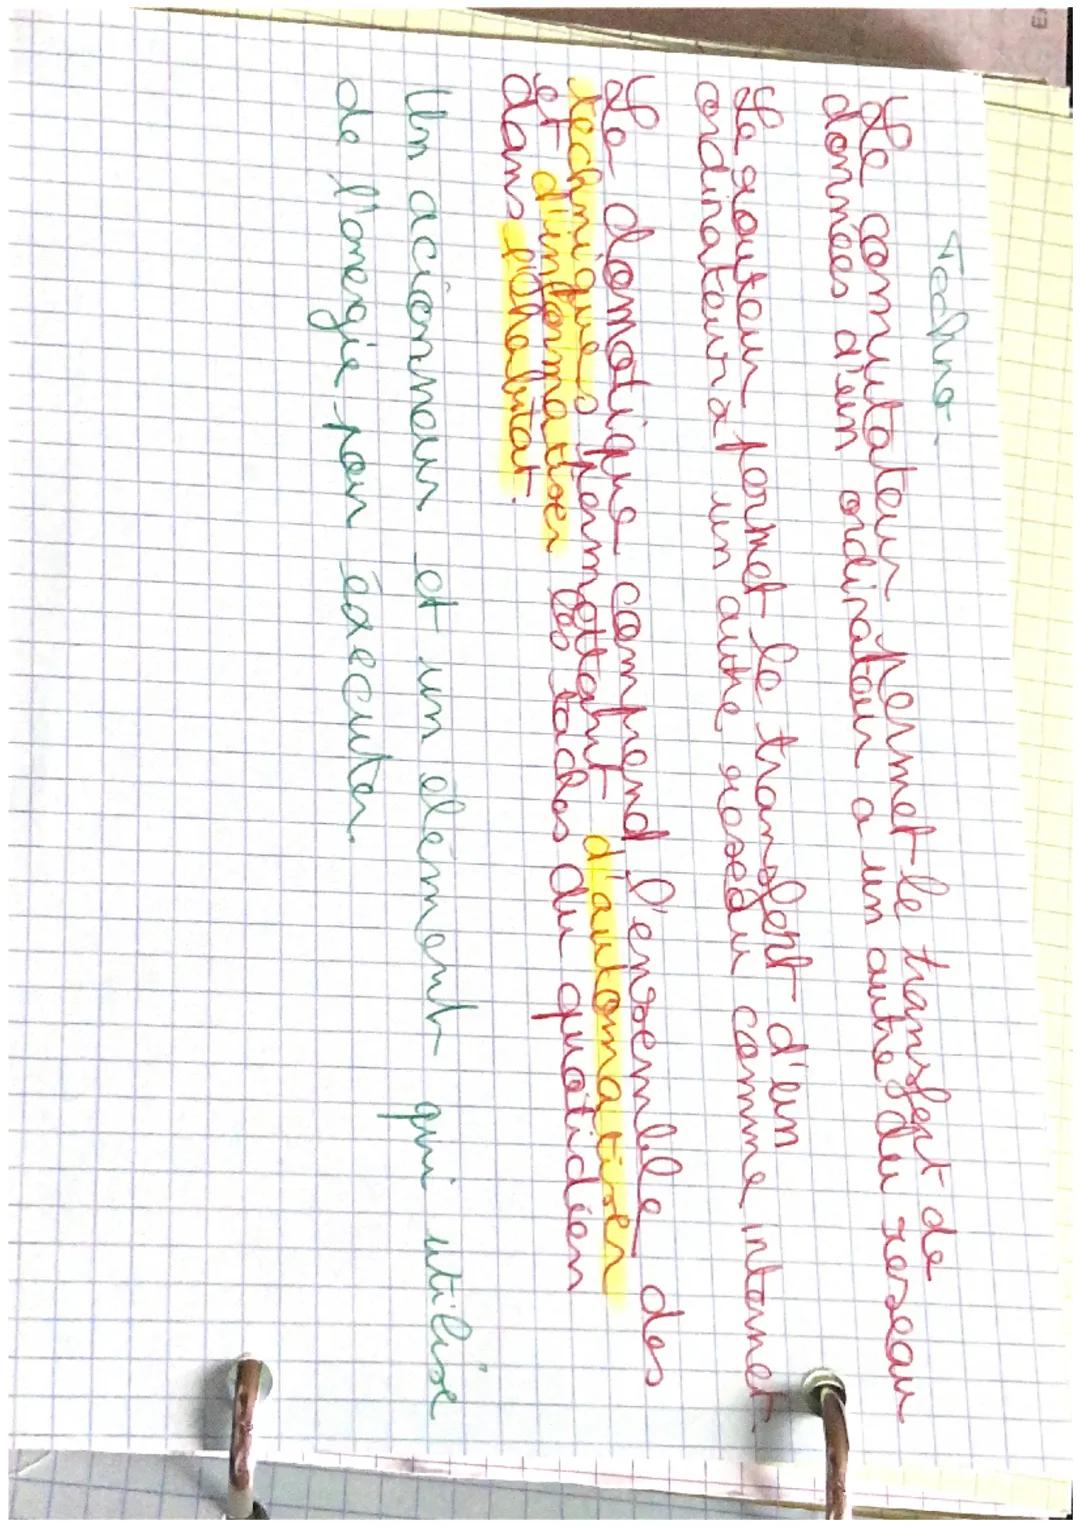 Techno.
Le comutateur permet le transfert de
données d'un ordinateur a un autre du reseau
Le routeur permet le transfert d'un
ordinateur a un autre resedu comme internet
Le domotique comprend l'ensemble des
techniques permettant d'automatiser
et d'informatiser les taches du quotidien
dans l'habitat.
Un acionneur et un élément qui utilise
de l'onergie pour éxécuter.